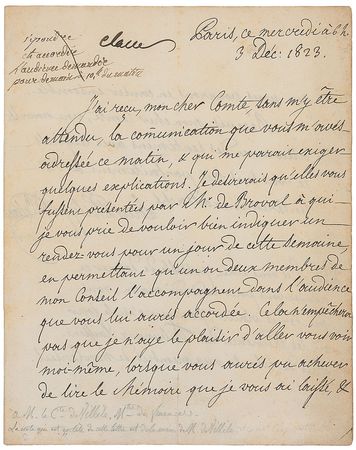 répondre
et accorder
l'audience demandée
pour demain 10h. du matin
classer
Paris, ce mercredi à 6h.
3 Déc: 1823.
J'ai reçu, mon cher Comte, sans m'y être
attendu, la comunication que vous m'avés
adressée ce matin, & qui me parait exiger
quelques explications. Je désirerais qu'elles vous
fussent présentées par Mr. de Broval à qui
je vous prie de vouloir bien indiquer un
rendez vous pour un jour de cette semaine,
en permettant qu'un ou deux membres de
mon Conseil l'accompagnent dans l'audience
que vous lui aurés accordée. Cela n'empêchera
pas que je n'aye le plaisir d'aller vous voir
moi-même, lorsque vous aurés pu achever
de lire le Mémoire que je vous ai laissé, &
a M. le Cte. de Villèle, Mtre. des finances
La note qui est en tête de cette lettre est de la main de M. de Villèle